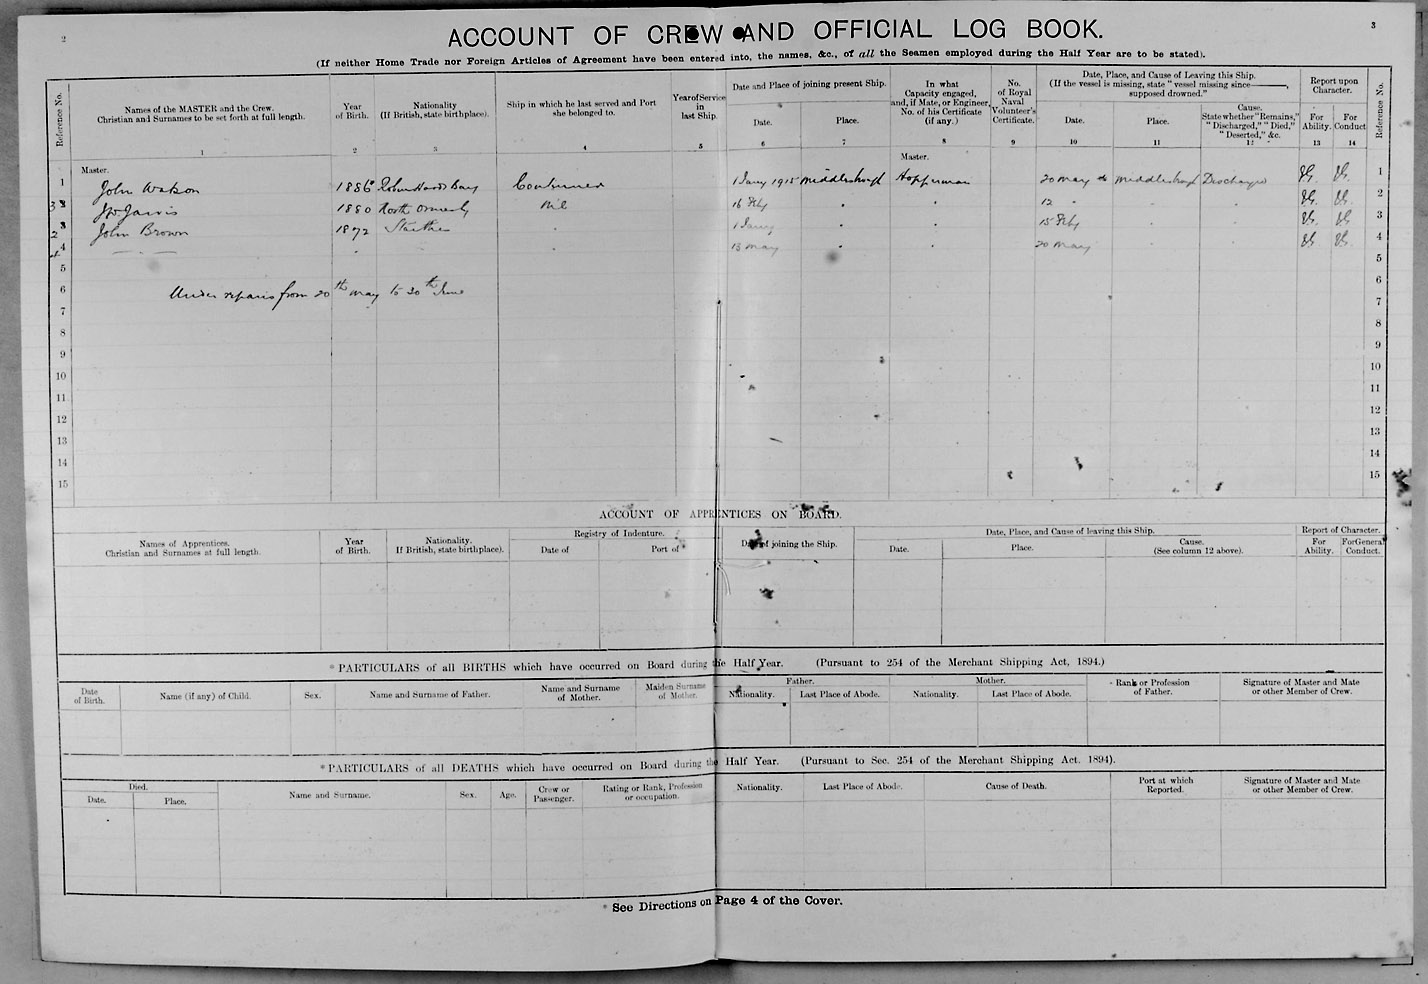 2
3
ACCOUNT OF CREW AND OFFICIAL LOG BOOK.
(If neither Home Trade nor Foreign Articles of Agreement have been entered into, the names, &c., of all the Seamen employed during the Half Year are to be stated).
Reference No.
Names of the MASTER and the Crew.
Christian and Surnames to be set forth at full length.
1
Year
of Birth.
2
Nationality
(If British, state birthplace).
3
Ship in which he last served and Port
she belonged to.
4
Year of Service
in
last Ship.
5
Date and Place of joining present Ship.
Date.
6
Place.
7
In what
Capacity engaged,
and, if Mate, or Engineer,
No. of his Certificate
(if any.)
8
No.
of Royal
Naval
Volunteer's
Certificate.
9
Date, Place, and Cause of Leaving this Ship.
(If the vessel is missing, state "vessel missing since———,
supposed drowned."
Date.
10
Place.
11
Cause.
State whether "Remains,"
"Discharged," "Died,"
"Deserted," &c.
12
Report upon
Character.
For
Ability.
13
For
Conduct
14
Reference No.
Master.
Master.
1 John Watson 1886 Robin Hoods Bay Continued 1 Jany 1915 Middlesbrough Hopperman 20 May Middlesbrough Discharged VG. VG. 1
3 2 Jarvis 1880 North Ormesby Nil 16 Feby " " 12 " " VG. VG. 2
2 3 John Brown 1872 Staithes " 1 Jany " " 15 Feby " " VG. VG. 3
4 — — — " " 13 May " " 20 May " " VG. VG. 4
5 5
6 Under repairs from 20th May to 30th June 6
7 7
8 8
9 9
10 10
11 11
12 12
13 13
14 14
15 15
ACCOUNT OF APPRENTICES ON BOARD.
Names of Apprentices.
Christian and Surnames at full length.
Year
of Birth.
Nationality.
If British, state birthplace).
Registry of Indenture.
Date of
Port of
Date of joining the Ship.
Date, Place, and Cause of leaving this Ship.
Date.
Place.
Cause.
(See column 12 above).
Report of Character.
For
Ability.
For General
Conduct.
* PARTICULARS of all BIRTHS which have occurred on Board during the Half Year. (Pursuant to 254 of the Merchant Shipping Act, 1894.)
Date
of Birth.
Name (if any) of Child.
Sex.
Name and Surname of Father.
Name and Surname
of Mother.
Maiden Surname
of Mother.
Father.
Nationality.
Last Place of Abode.
Mother.
Nationality.
Last Place of Abode.
Rank or Profession
of Father.
Signature of Master and Mate
or other Member of Crew.
* PARTICULARS of all DEATHS which have occurred on Board during the Half Year. (Pursuant to Sec. 254 of the Merchant Shipping Act. 1894).
Died.
Date.
Place.
Name and Surname.
Sex.
Age.
Crew or
Passenger.
Rating or Rank, Profession
or occupation.
Nationality.
Last Place of Abode.
Cause of Death.
Port at which
Reported.
Signature of Master and Mate
or other Member of Crew.
* See Directions on Page 4 of the Cover.